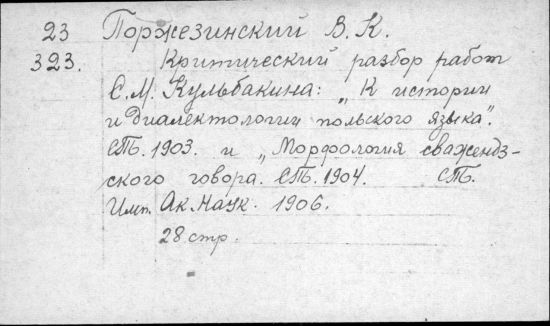 23 Поржезинский В. К.
323. Критический разбор работ
С. М. Кульбакина: „К истории
и диалектологии польского языка".
СПб. 1903. и „Морфология сважендз-
ского говора. СПб. 1904. СПб.
Имп. Ак. Наук. 1906.
28 стр.